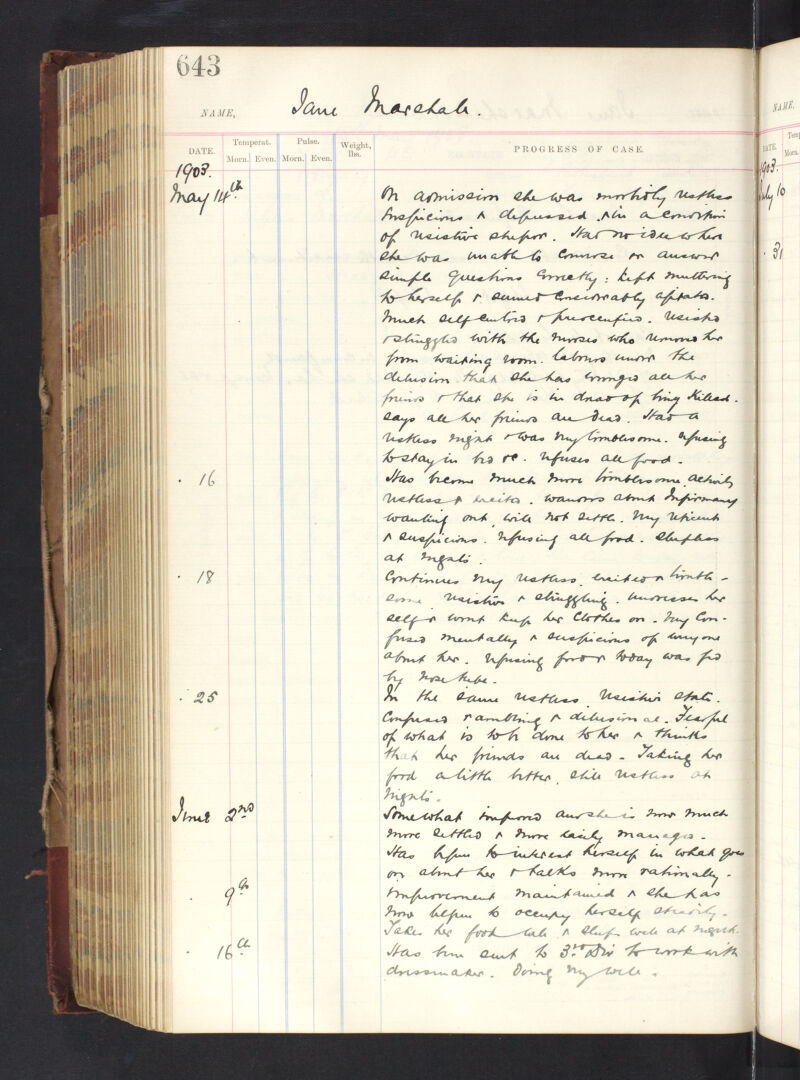 643
NAME, Jane Marshall.
DATE. Temperat. Morn. Even. Pulse. Morn. Even. Weight, lbs. PROGRESS OF CASE.
1903.
May 14th On admission she was morbidly restless
suspicious & depressed & in a condition
of resistive stupor. Had no idea where
she was unable to converse or answer
simple questions correctly: kept muttering
to herself & seemed considerably agitated.
Much self centred & preoccupied. Resisted
& struggled with the nurses who removed her
from waiting room. Labours under the
delusion that she has wronged all her
friends & that she is in dread of being killed.
Says all her friends are dead. Had a
restless night & was very troublesome. Refusing
to stay in bed &c. Refuses all food.
. 16 Has become much more troublesome, actively
restless & excited. Wanders about Infirmary
wanting out, will not settle. Very reticent
& suspicious. Refusing all food. Sleepless
at nights.
. 18 Continues very restless, excited & trouble-
some, resistive & struggling. Undresses her
self & wont keep her clothes on. Very con-
fused mentally & suspicious of anyone
about her. Refusing food & today was fed
by nose tube.
. 25 In the same restless, resistive state.
Confused & rambling & delusional. Fearful
of what is to be done to her & thinks
that her friends are dead. Taking her
food a little better, still restless at
nights.
June 2nd Somewhat improved and she is now much
more settled & more easily managed.
Has begun to interest herself in what goes
on about her & talks more rationally.
. 9th Improvement maintained & she has
now begun to occupy herself steadily.
Takes her food well & sleeps well at night.
. 16th Has been sent to 3rd Div to work with
dressmaker. Doing very well.
NAME,
DATE. Morn.
1903.
July 10
. 31